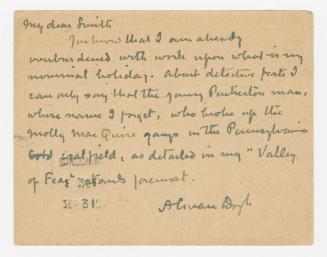 My dear Smith
You know that I am already
overburdened with work upon what is my
nominal holiday. About detective feats I
can only say that the young Pinkerton man,
whose name I forget, who broke up the
Molly MacQuire gang in the Pennsylvania
Gold coalfield, as detailed in my "Valley
of Fear" stands foremost.
A Conan Doyle
SEP 3 19